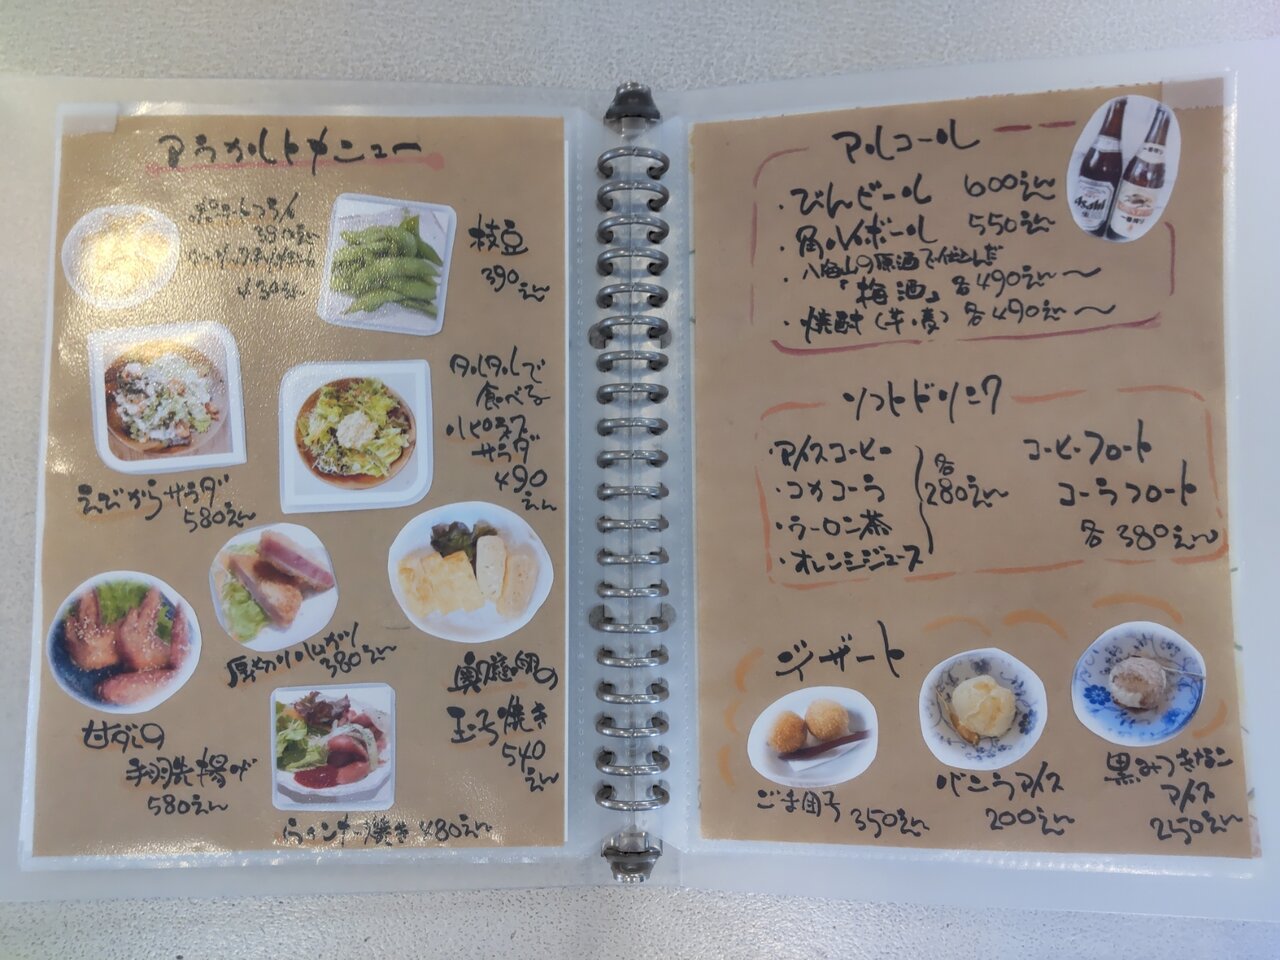 アラカルトメニュー
380えん
430えん
枝豆
390えん
えびからサラダ
580えん
タルタルで
食べる
サラダ
490
えん
甘ダレの
手羽先揚げ
580えん
厚切りハムカツ
380えん
奥庭の卵の
玉子焼き
540
えん
ウィンナー焼き 480えん
アルコール
・びんビール 600えん
・角ハイボール 550えん
・八海山の原酒で仕込んだ
「梅酒」各490えん〜
・焼酎(芋・麦) 各490えん〜
Asahi
一番搾り
ソフトドリンク
・アイスコーヒー
・コカコーラ
・ウーロン茶
・オレンジジュース
各
280えん
コーヒーフロート
コーラフロート
各380えん
デザート
ごま団子 350えん
バニラアイス
200えん
黒みつきなこ
アイス
250えん